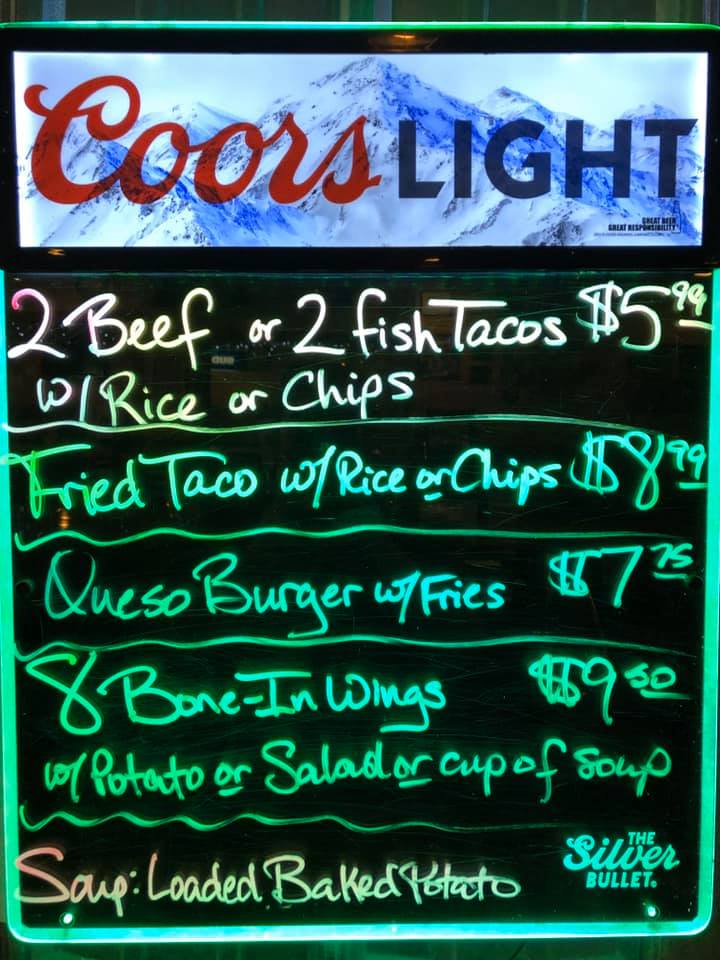 Coors LIGHT
GREAT BEER
GREAT RESPONSIBILITY
2 Beef or 2 fish Tacos $5 99
w/ Rice or Chips
Fried Taco w/ Rice or Chips $8 99
Queso Burger w/ Fries $7 75
8 Bone-In Wings $9 50
w/ Potato or Salad or cup of soup
Soup: Loaded Baked Potato
THE
Silver
BULLET.